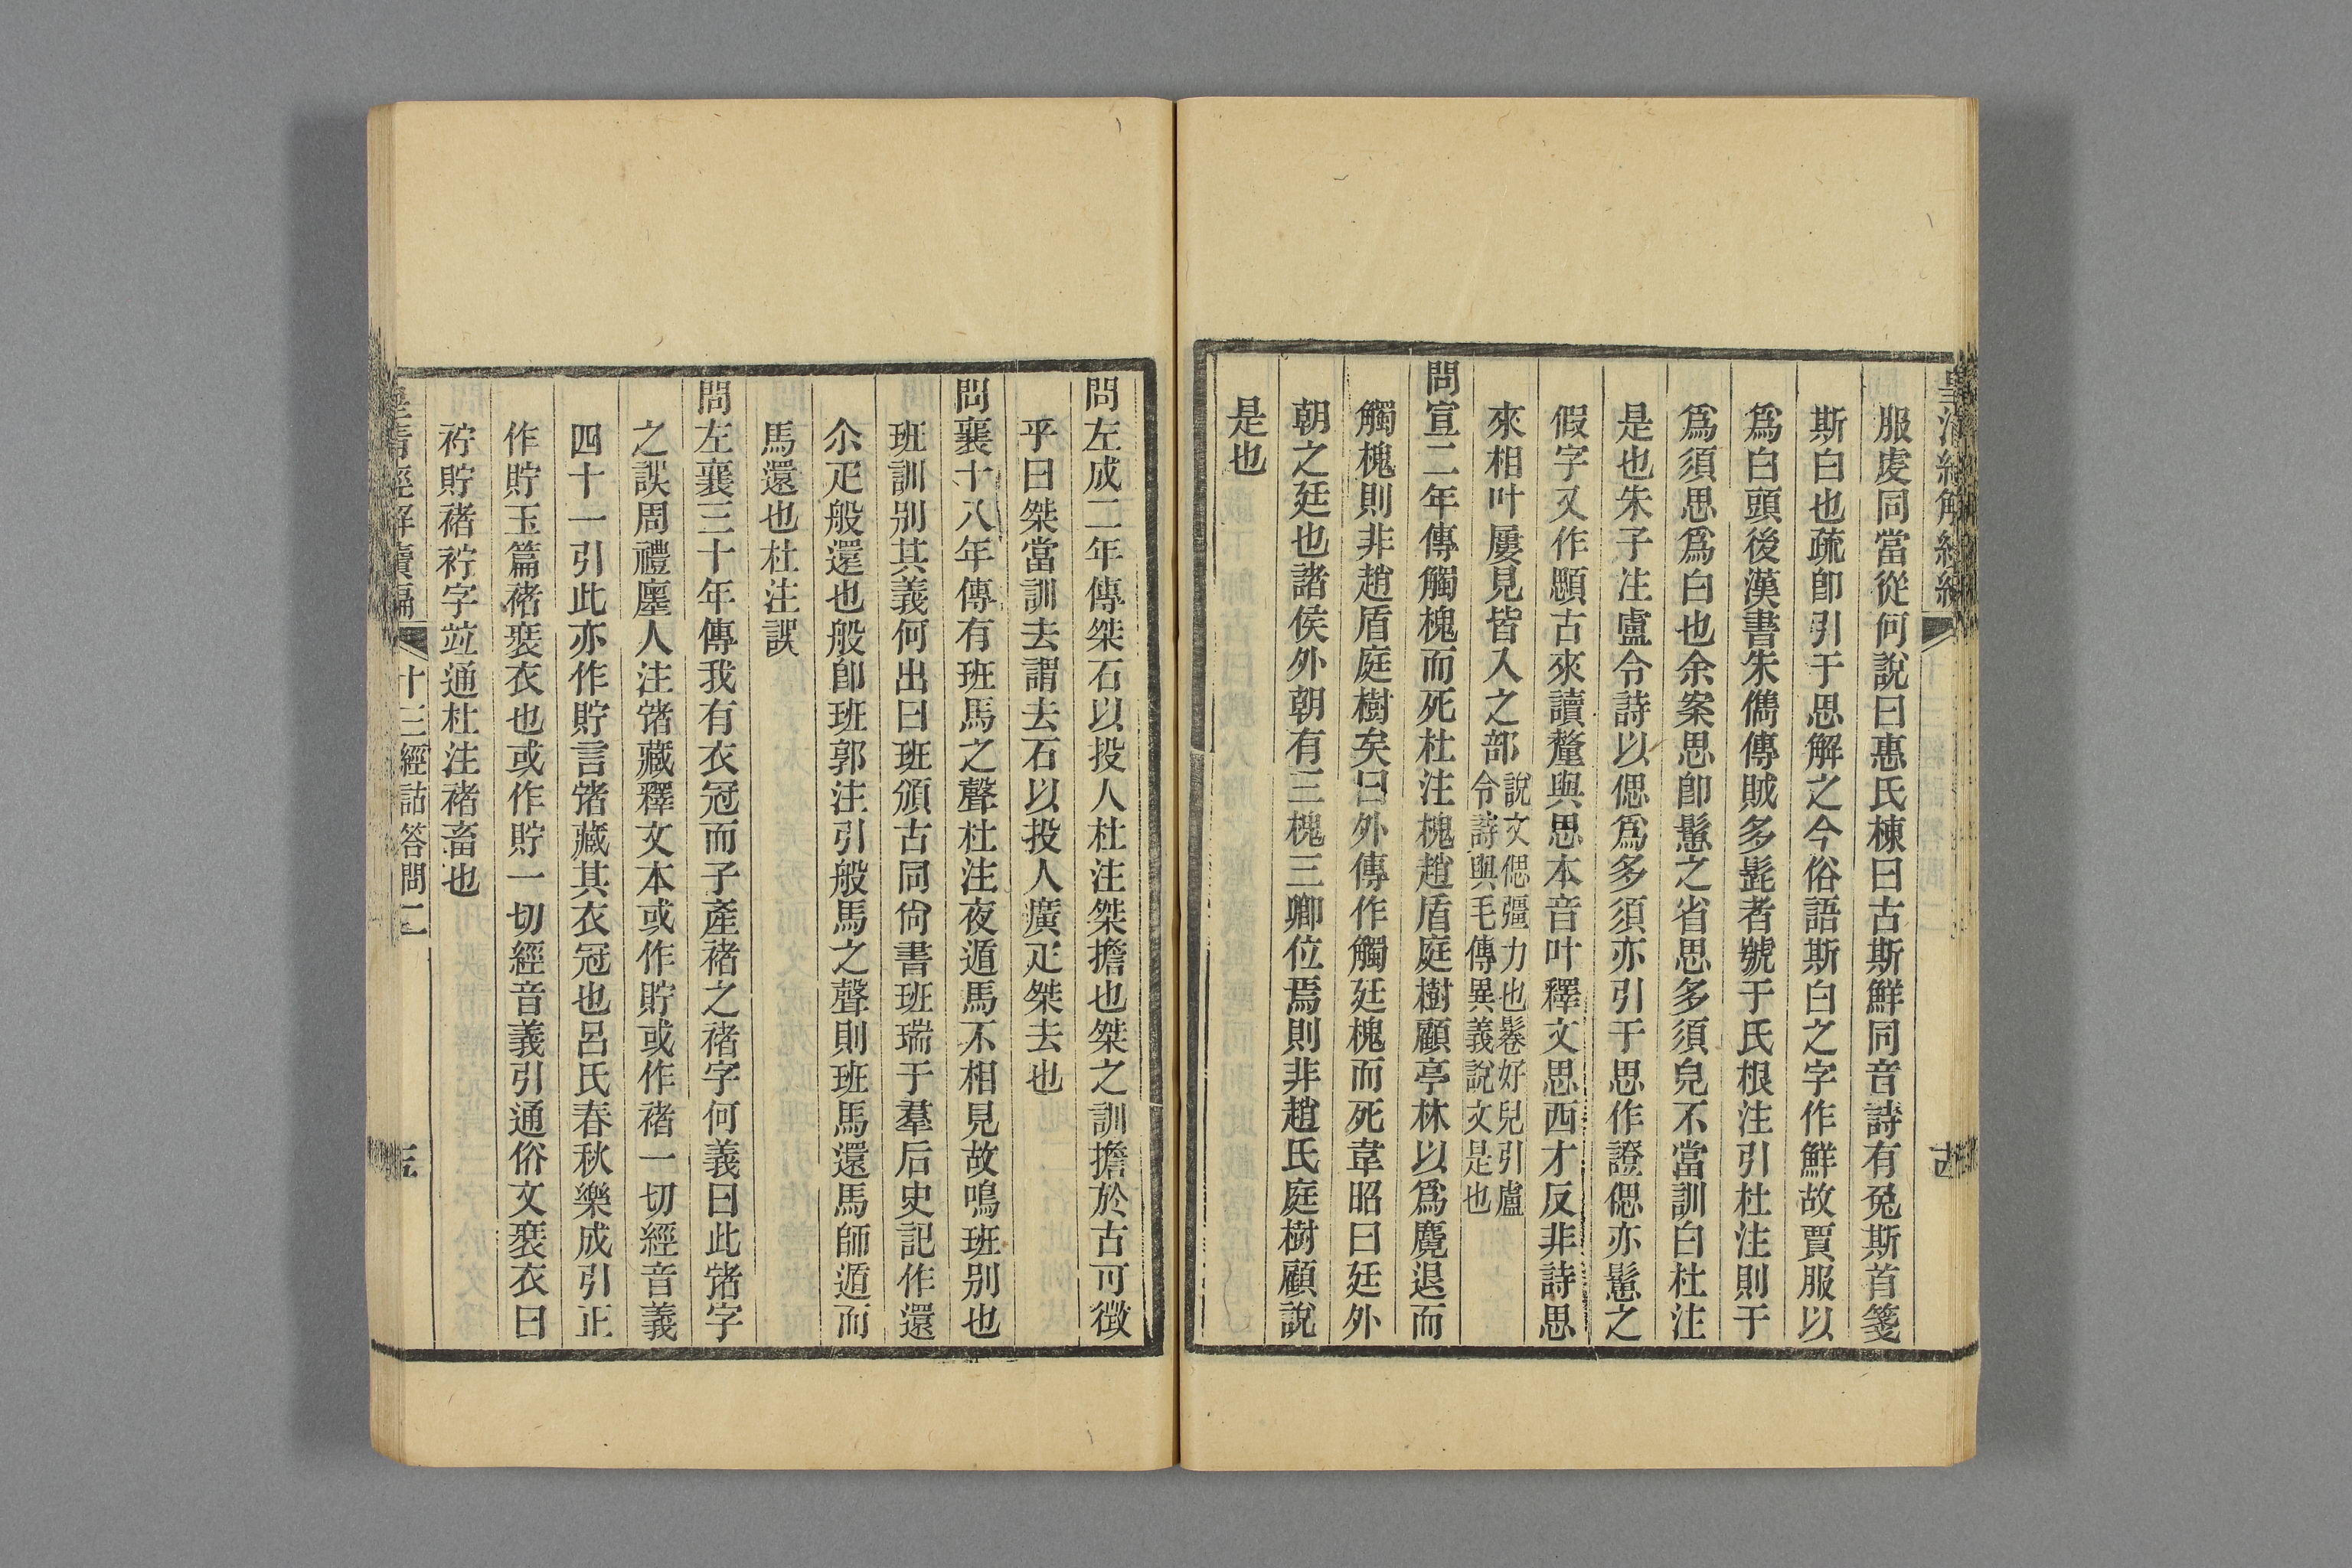 服虔同當從何說曰惠氏棟曰古斯鮮同音詩有兔斯首箋
斯白也疏卽引于思解之今俗語斯白之字作鮮故賈服以
爲白頭後漢書朱儁傳賊多髭者號于氏根注引杜注則于
爲須思爲白也余案思卽鬛之省思多須皃不當訓白杜注
是也朱子注盧令詩以偲爲多須亦引于思作證偲亦鬛之
假字又作顋古來讀釐與思本音叶釋文思西才反非詩思
來相叶屢見皆入之部說文偲彊力也鬈好皃引盧
令詩與毛傳異義說文是也
問宣二年傳觸槐而死杜注槐趙盾庭樹顧亭林以爲麑退而
觸槐則非趙盾庭樹矣曰外傳作觸廷槐而死韋昭曰廷外
朝之廷也諸侯外朝有三槐三卿位焉則非趙氏庭樹顧說
是也
問左成二年傳桀石以投人杜注桀擔也桀之訓擔於古可徵
乎曰桀當訓去謂去石以投人廣疋桀去也
問襄十八年傳有班馬之聲杜注夜遁馬不相見故鳴班別也
班訓別其義何出曰班頒古同尙書班瑞于羣后史記作還
尒疋般還也般卽班郭注引般馬之聲則班馬還馬師遁而
馬還也杜注誤
問左襄三十年傳我有衣冠而子產褚之褚字何義曰此䐗字
之誤周禮廛人注䐗藏釋文本或作貯或作褚一切經音義
四十一引此亦作貯言䐗藏其衣冠也呂氏春秋樂成引正
作貯玉篇褚裝衣也或作貯一切經音義引通俗文裝衣曰
䘢貯褚䘢字竝通杜注褚畜也
皇清經解續編 十三經詁答問二